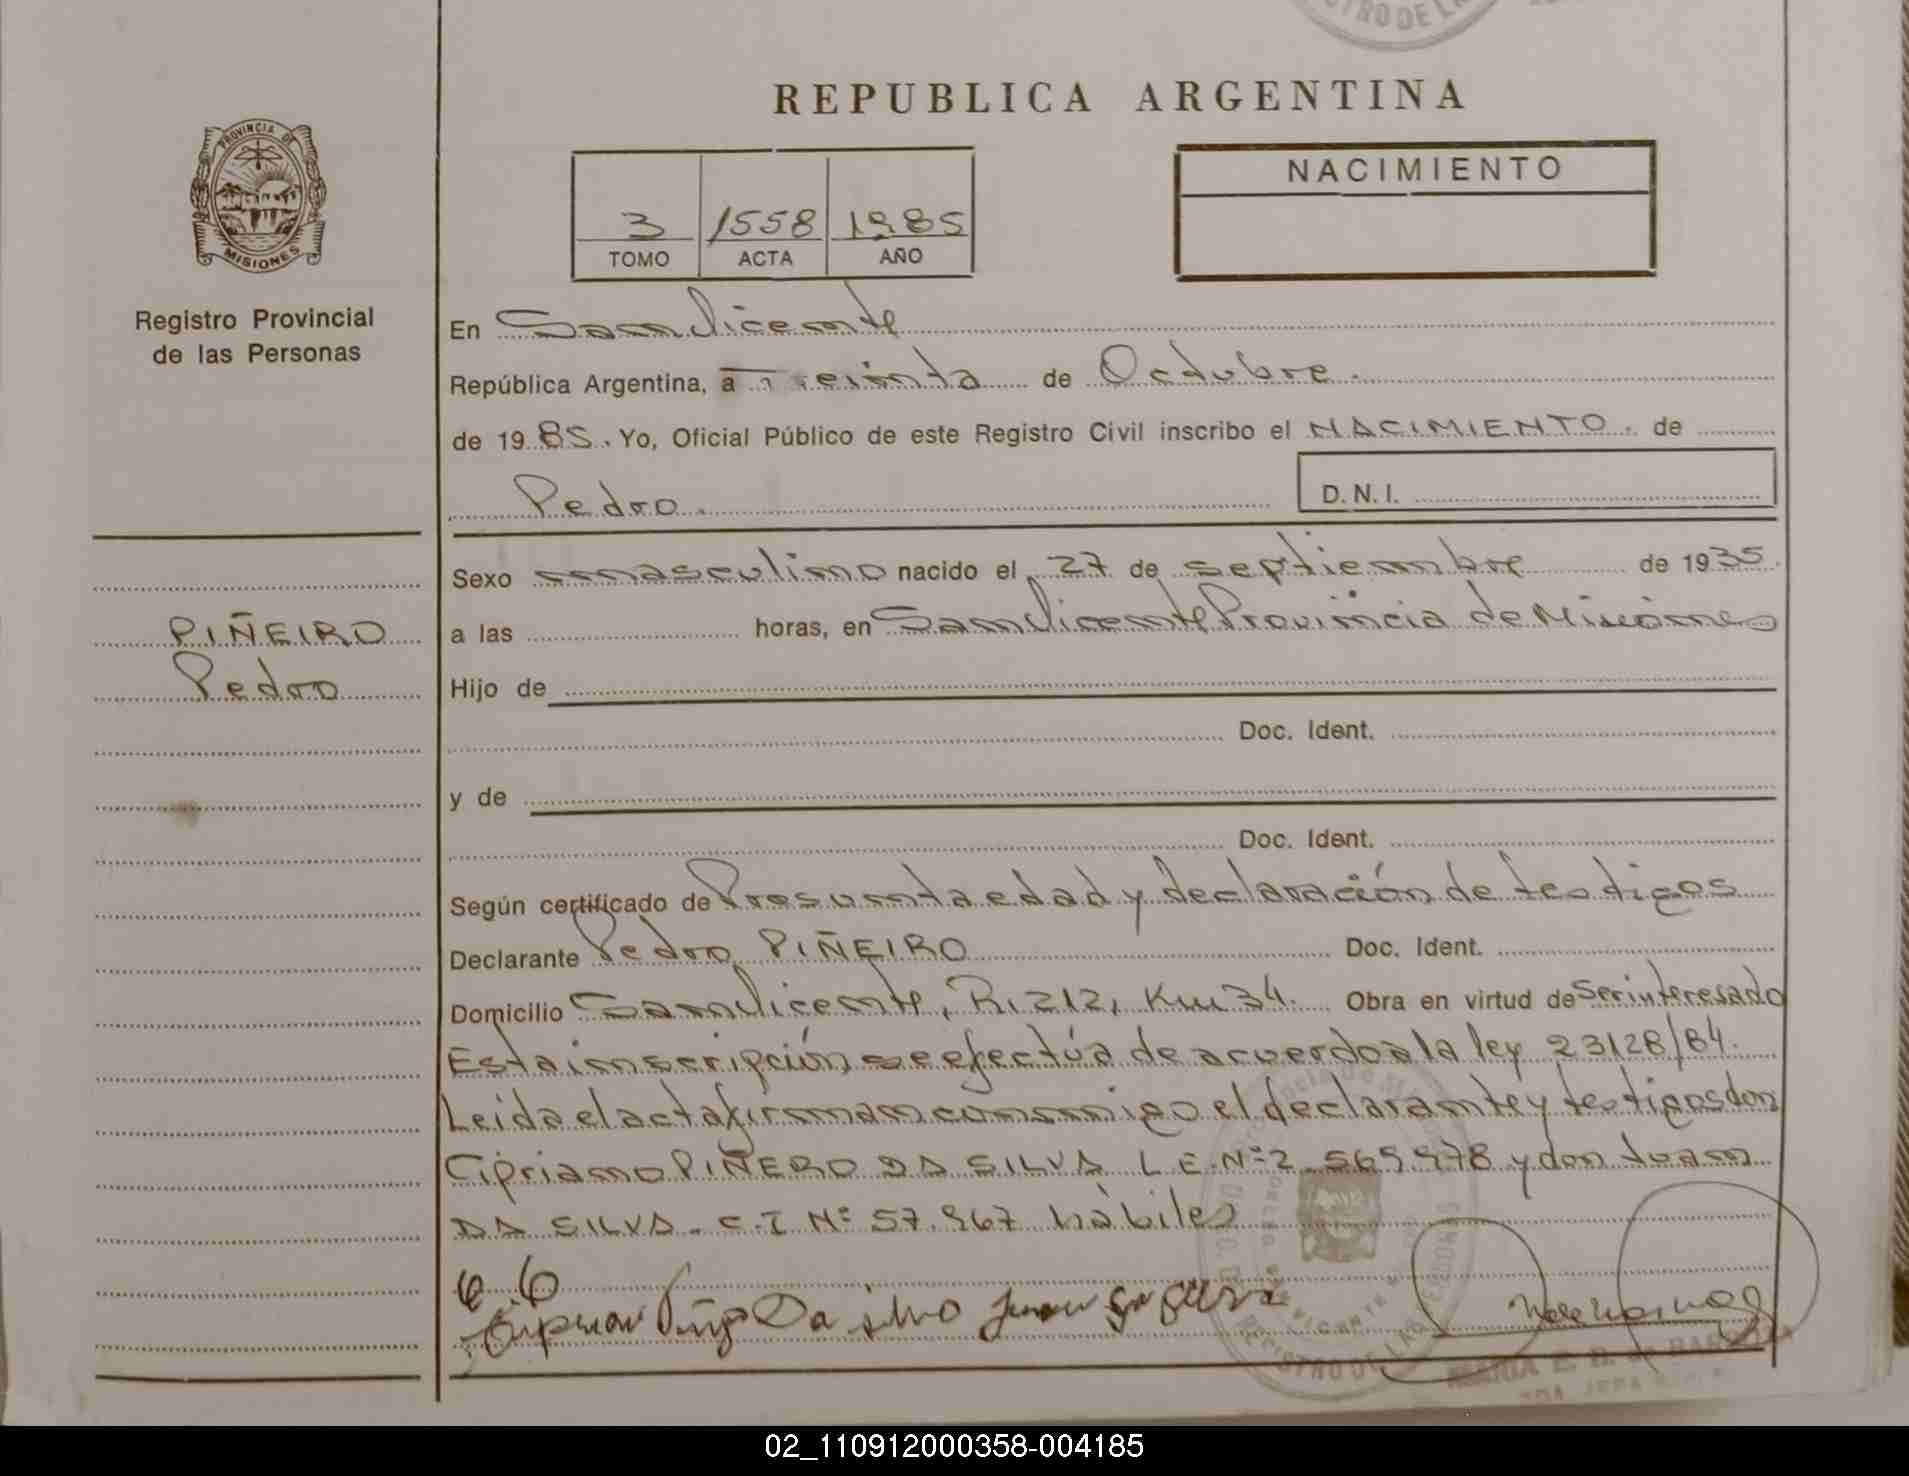 TRO DE LA
REPUBLICA ARGENTINA
PROVINCIA DE
MISIONES
NACIMIENTO
3 1558 1985
TOMO ACTA AÑO
Registro Provincial
de las Personas
En San Vicente
República Argentina, a Treinta de Octubre.
de 19 85. Yo, Oficial Público de este Registro Civil inscribo el NACIMIENTO. de
Pedro.
D.N.I.
Sexo masculino nacido el 27 de septiembre de 1935.
PIÑEIRO
a las horas, en San Vicente Provincia de Misiones
Pedro
Hijo de
Doc. Ident.
y de
Doc. Ident.
Según certificado de Presunta edad y declaración de testigos
Declarante Pedro PIÑEIRO Doc. Ident.
Domicilio San Vicente, R. 212, Km 34. Obra en virtud de Ser interesado
Esta inscripción se efectúa de acuerdo a la ley 23128/84.
Leida el acta firman conmigo el declarante y testigos don
Cipriano PIÑERO DA SILVA L.E. Nº 2.565.978 y don Juan
DA SILVA - C.I Nº 57.967 hábiles
REGISTRO DE LAS
MARIA E.
02_110912000358-004185